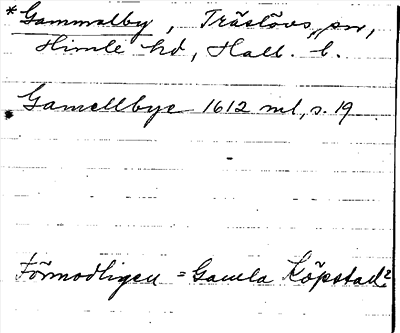 *Gammalby, Träslövs sn,
Himle hd, Hall. l.
Gamellbye 1612 ml, s. 19
Förmodligen = Gamla Köpstad?